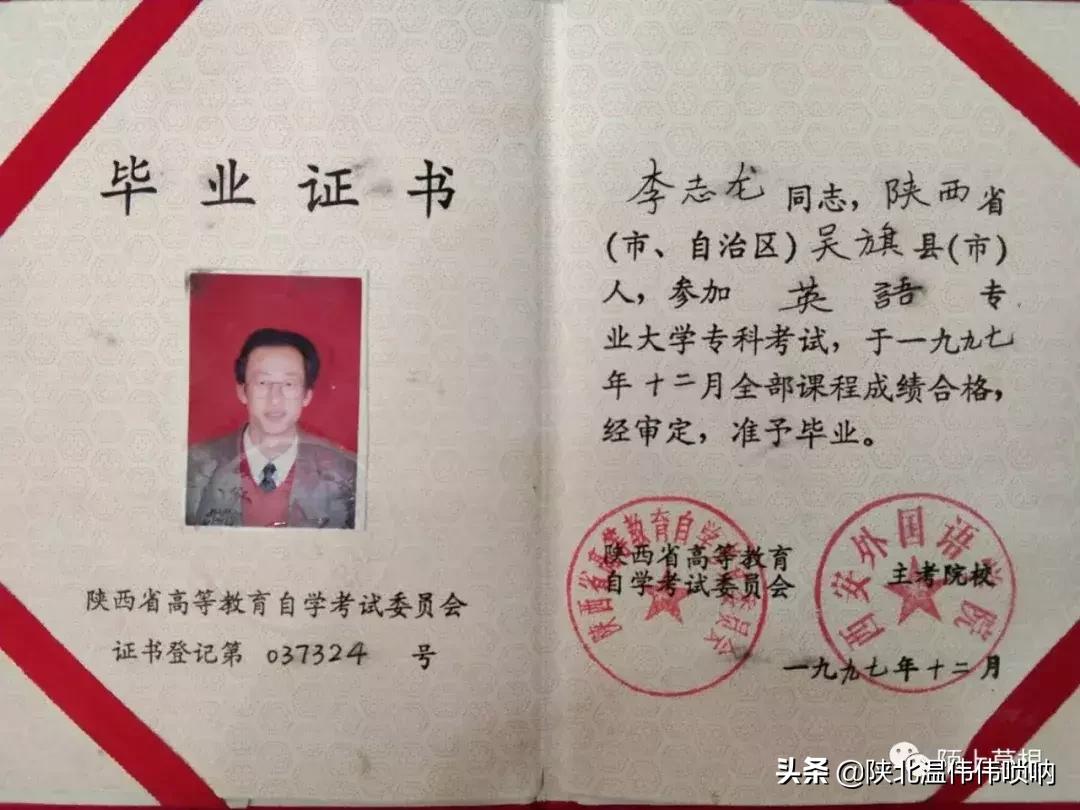 毕业证书
陕西省高等教育自学考试委员会
证书登记第 037324 号
李志龙同志，陕西省
(市、自治区)吴旗县(市)
人，参加 英語 专
业大学专科考试，于一九九七
年十二月全部课程成绩合格，
经审定，准予毕业。
陕西省高等教育自学考试委员会
陕西省高等教育
自学考试委员会
西安外国语学院
主考院校
一九九七年十二月
陌上草根
头条 @陕北温伟伟唢呐